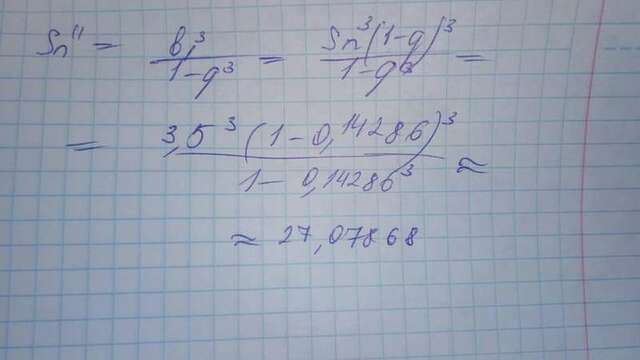 Sn'' = b₁³ / 1-q³ = Sn³(1-q)³ / 1-q³ =
= 3,5³ (1-0,14286)³ / 1-0,14286³ ≈
≈ 27,07868